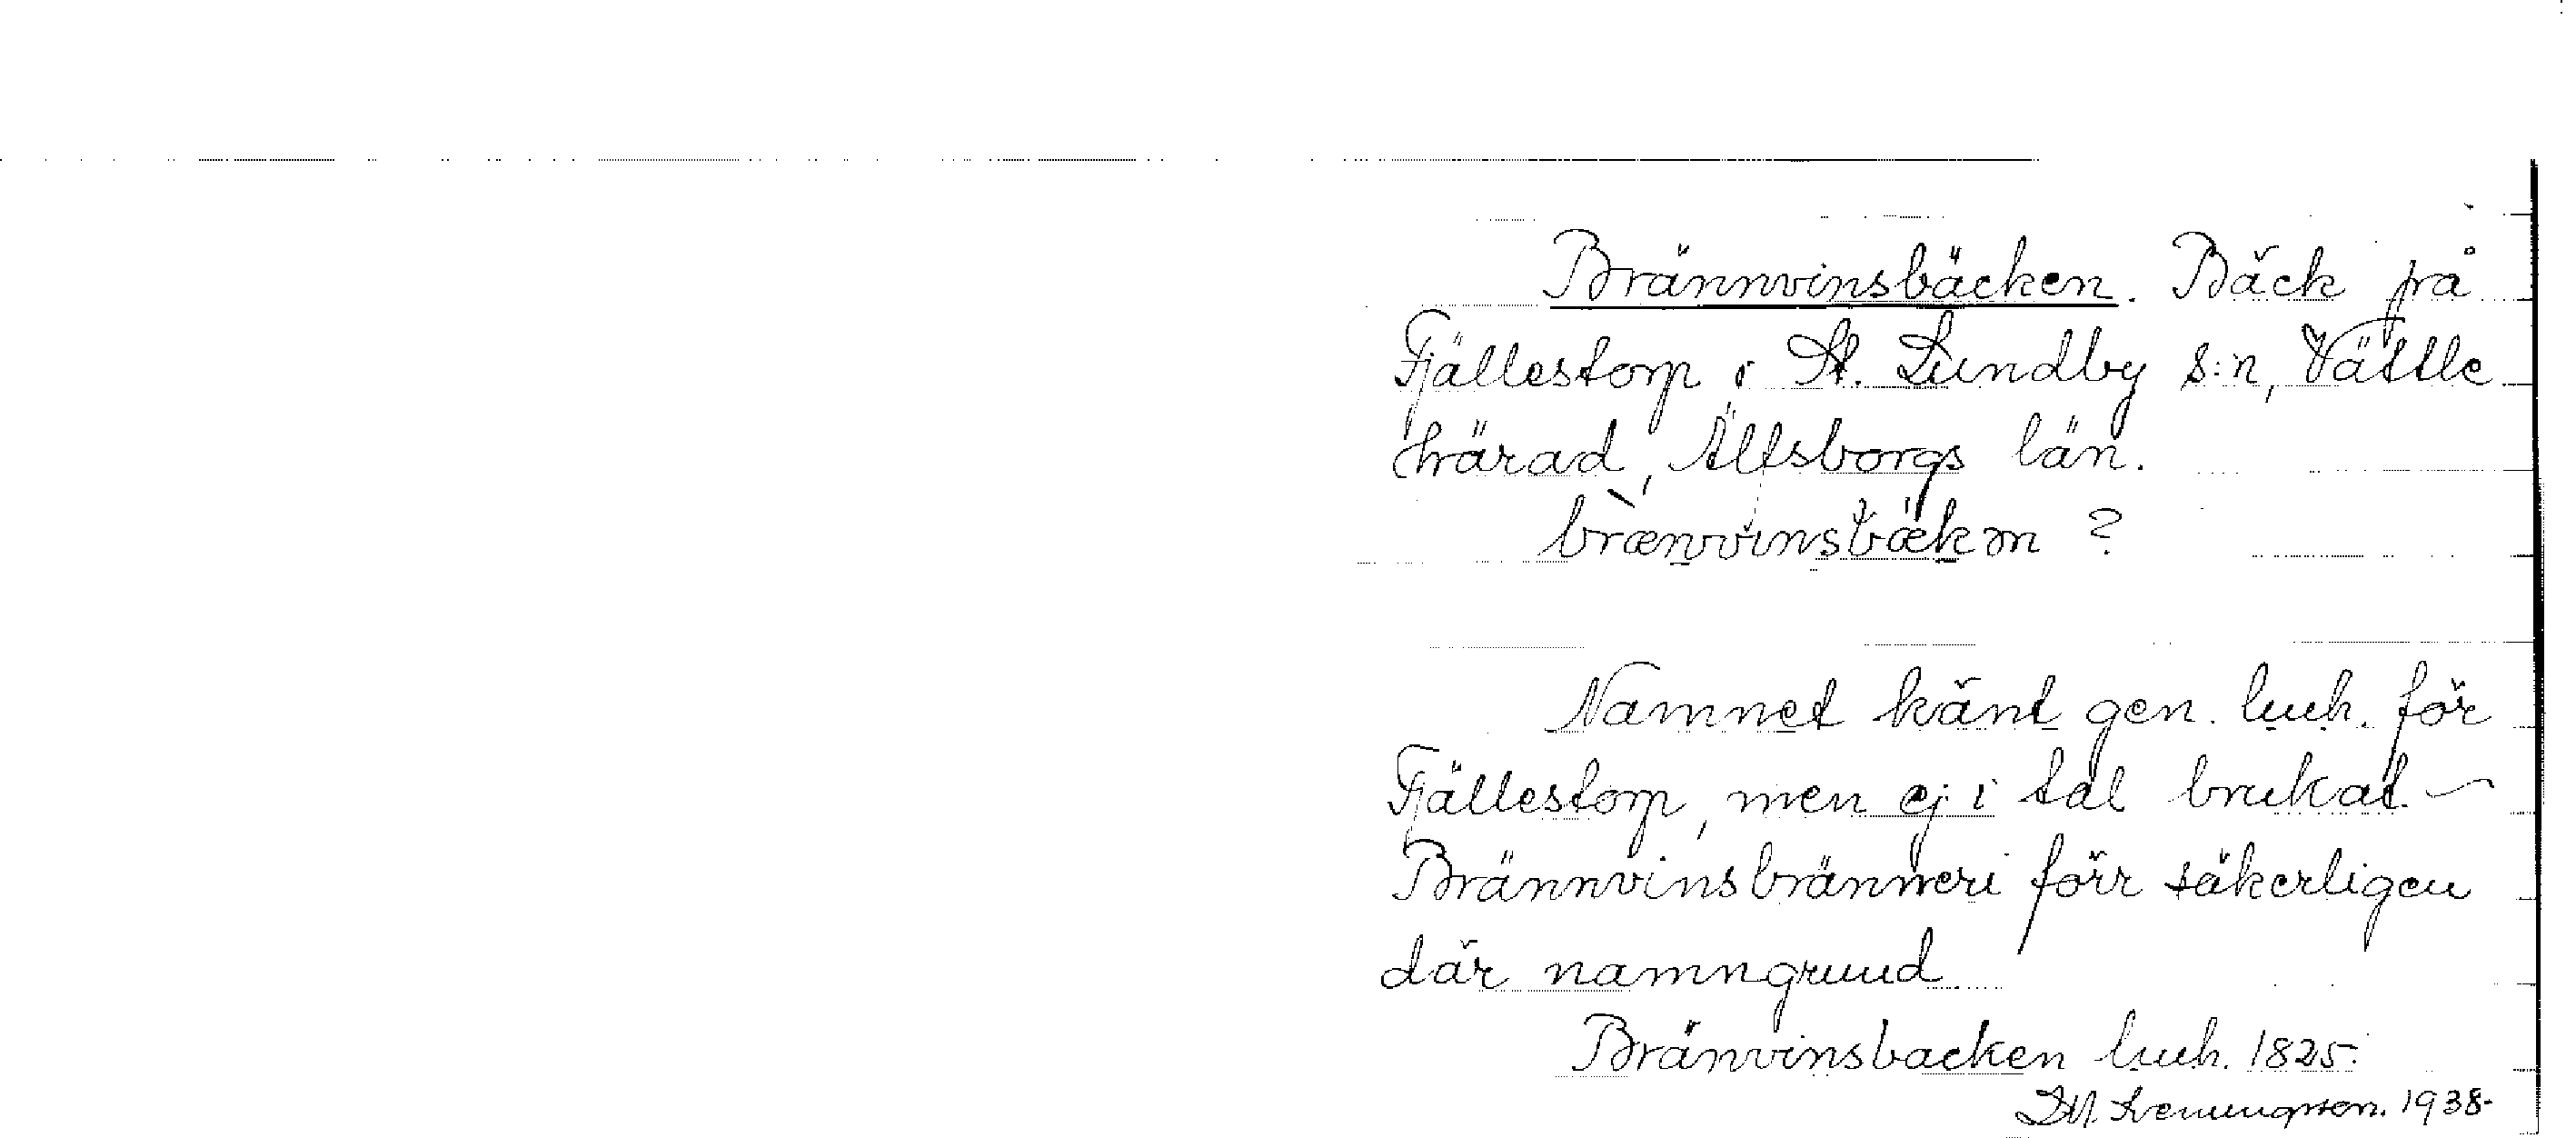 Brännvinsbäcken. Bäck på
Fjällestorp i St. Lundby s:n, Vättle
härad, Älfsborgs län.
brænvinsbækən ?
Namnet känt gen. luh. för
Fjällestorp, men ej i tal brukat. –
Brännvinsbränneri förr säkerligen
där namngrund.
Bränvinsbacken luh. 1825.
1938.